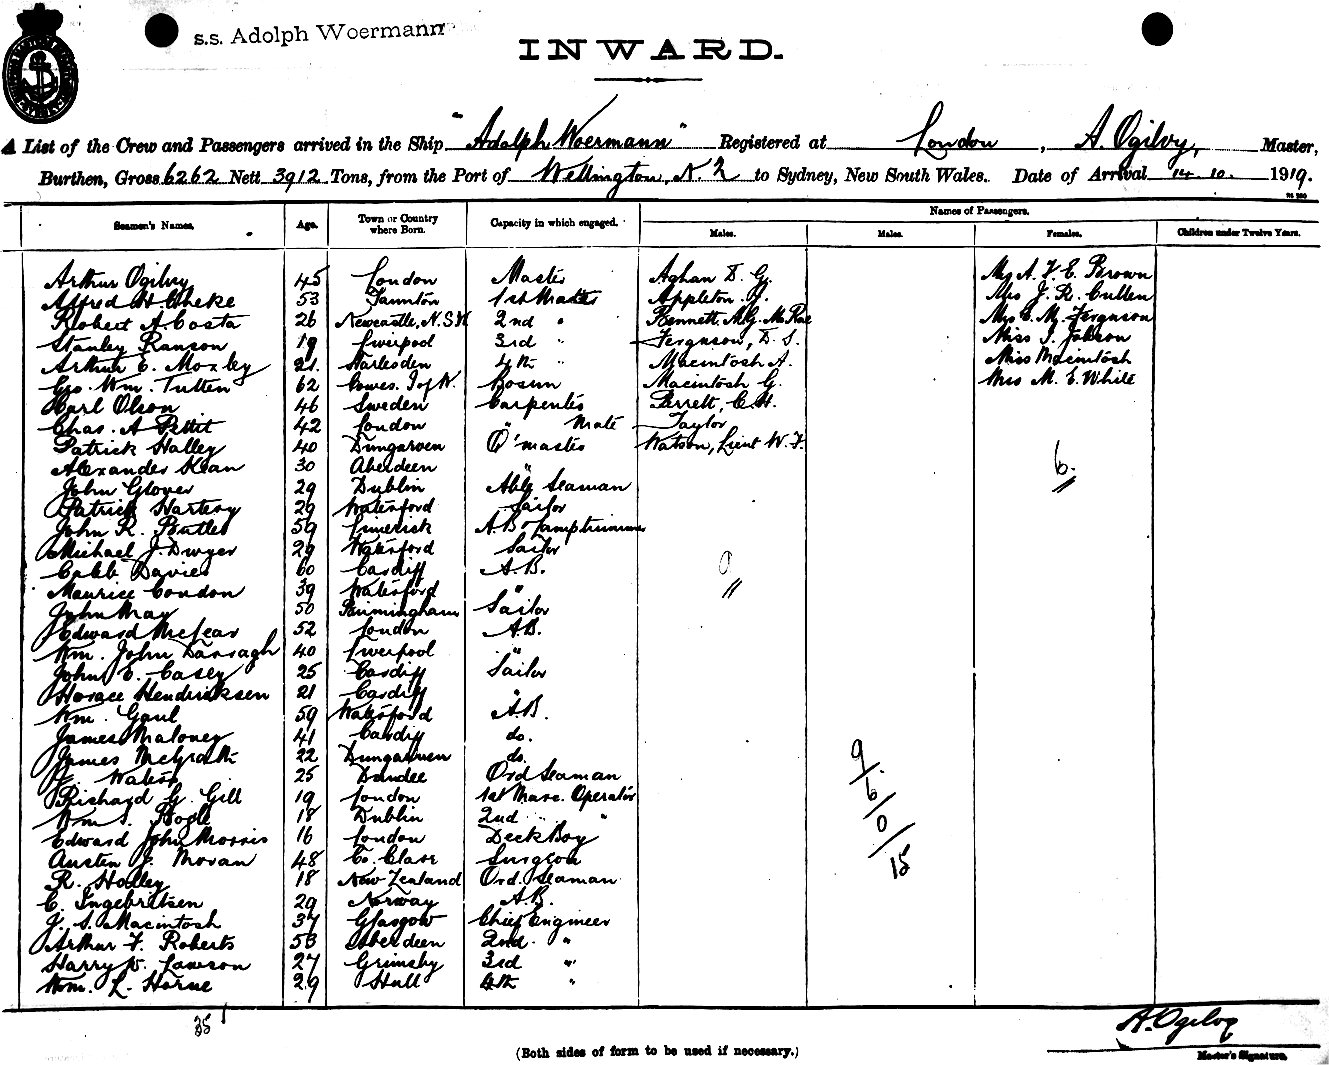 s.s. Adolph Woermann
INWARD.
A List of the Crew and Passengers arrived in the Ship "Adolph Woermann" Registered at London, A. Ogilvy, Master,
Burthen, Gross 6262 Nett 3912 Tons, from the Port of Wellington, N.Z to Sydney, New South Wales. Date of Arrival 14.10. 1919.
Names of Passengers.
Seamen's Names. Age. Town or Country where Born. Capacity in which engaged. Males. Males. Females. Children under Twelve Years.
Arthur Ogilvy 45 London Master Aghan D. G. Mrs A. F. E. Brown
Alfred H. Cheke 53 Taunton 1st Mate Appleton Mrs J. R. Cullen
Robert A Costa 26 Newcastle, N.S.W 2nd " Bennett, M.G. McRae Mrs E. M. Ferguson
Stanley Ranson 19 Liverpool 3rd " Ferguson, D. S. Miss I. Jobson
Arthur E. Moxley 21 Harlesden 4th " Macintosh A. Miss Macintosh
Geo. Wm. Tutten 62 Cowes. I of W. Bosun Macintosh G. Miss M. E. White
Karl Olson 46 Sweden Carpenter Parrett, C.H.
Chas. A Pettit 42 London " Mate Taylor
Patrick Halley 40 Dungarven Q'master Watson, Lieut W. F.
Alexander Kean 30 Aberdeen " 6.
John Glover 29 Dublin Able Seaman
Patrick Hartery 29 Waterford Sailor
John R. Butler 59 Limerick A.B & Lamptrimmer
Michael J. Dwyer 29 Waterford Sailor
Caleb Davies 60 Cardiff A.B. 9
Maurice Condon 39 Waterford "
John May 50 Birmingham Sailor
Edward 52 London A.B.
Wm. John Darragh 40 Liverpool "
John E. Casey 25 Cardiff Sailor
Horace Hendricksen 21 Cardiff "
Wm. Gaul 59 Waterford A.B.
James Maloney 41 Cardiff do.
James McGrath 22 Dungarven do. 9
J. Water 25 Dundee Ord Seaman 6
Richard G. Gill 19 London 1st Marc. Operator 0
Wm. 18 Dublin 2nd " " 15
Edward John Morris 16 London Deck Boy
Austen J. Moran 48 Co. Clare Surgeon
R. Halley 18 New Zealand Ord. Seaman
C. Ingebritsen 29 Norway A.B.
J. S. Macintosh 37 Glasgow Chief Engineer
Arthur F. Roberts 53 Aberdeen 2nd "
Harry W. Lawson 27 Grimsby 3rd "
Wm. L. Horne 29 Hull 4th "
35
A. Ogilvy
(Both sides of form to be used if necessary.)
Master's Signature.